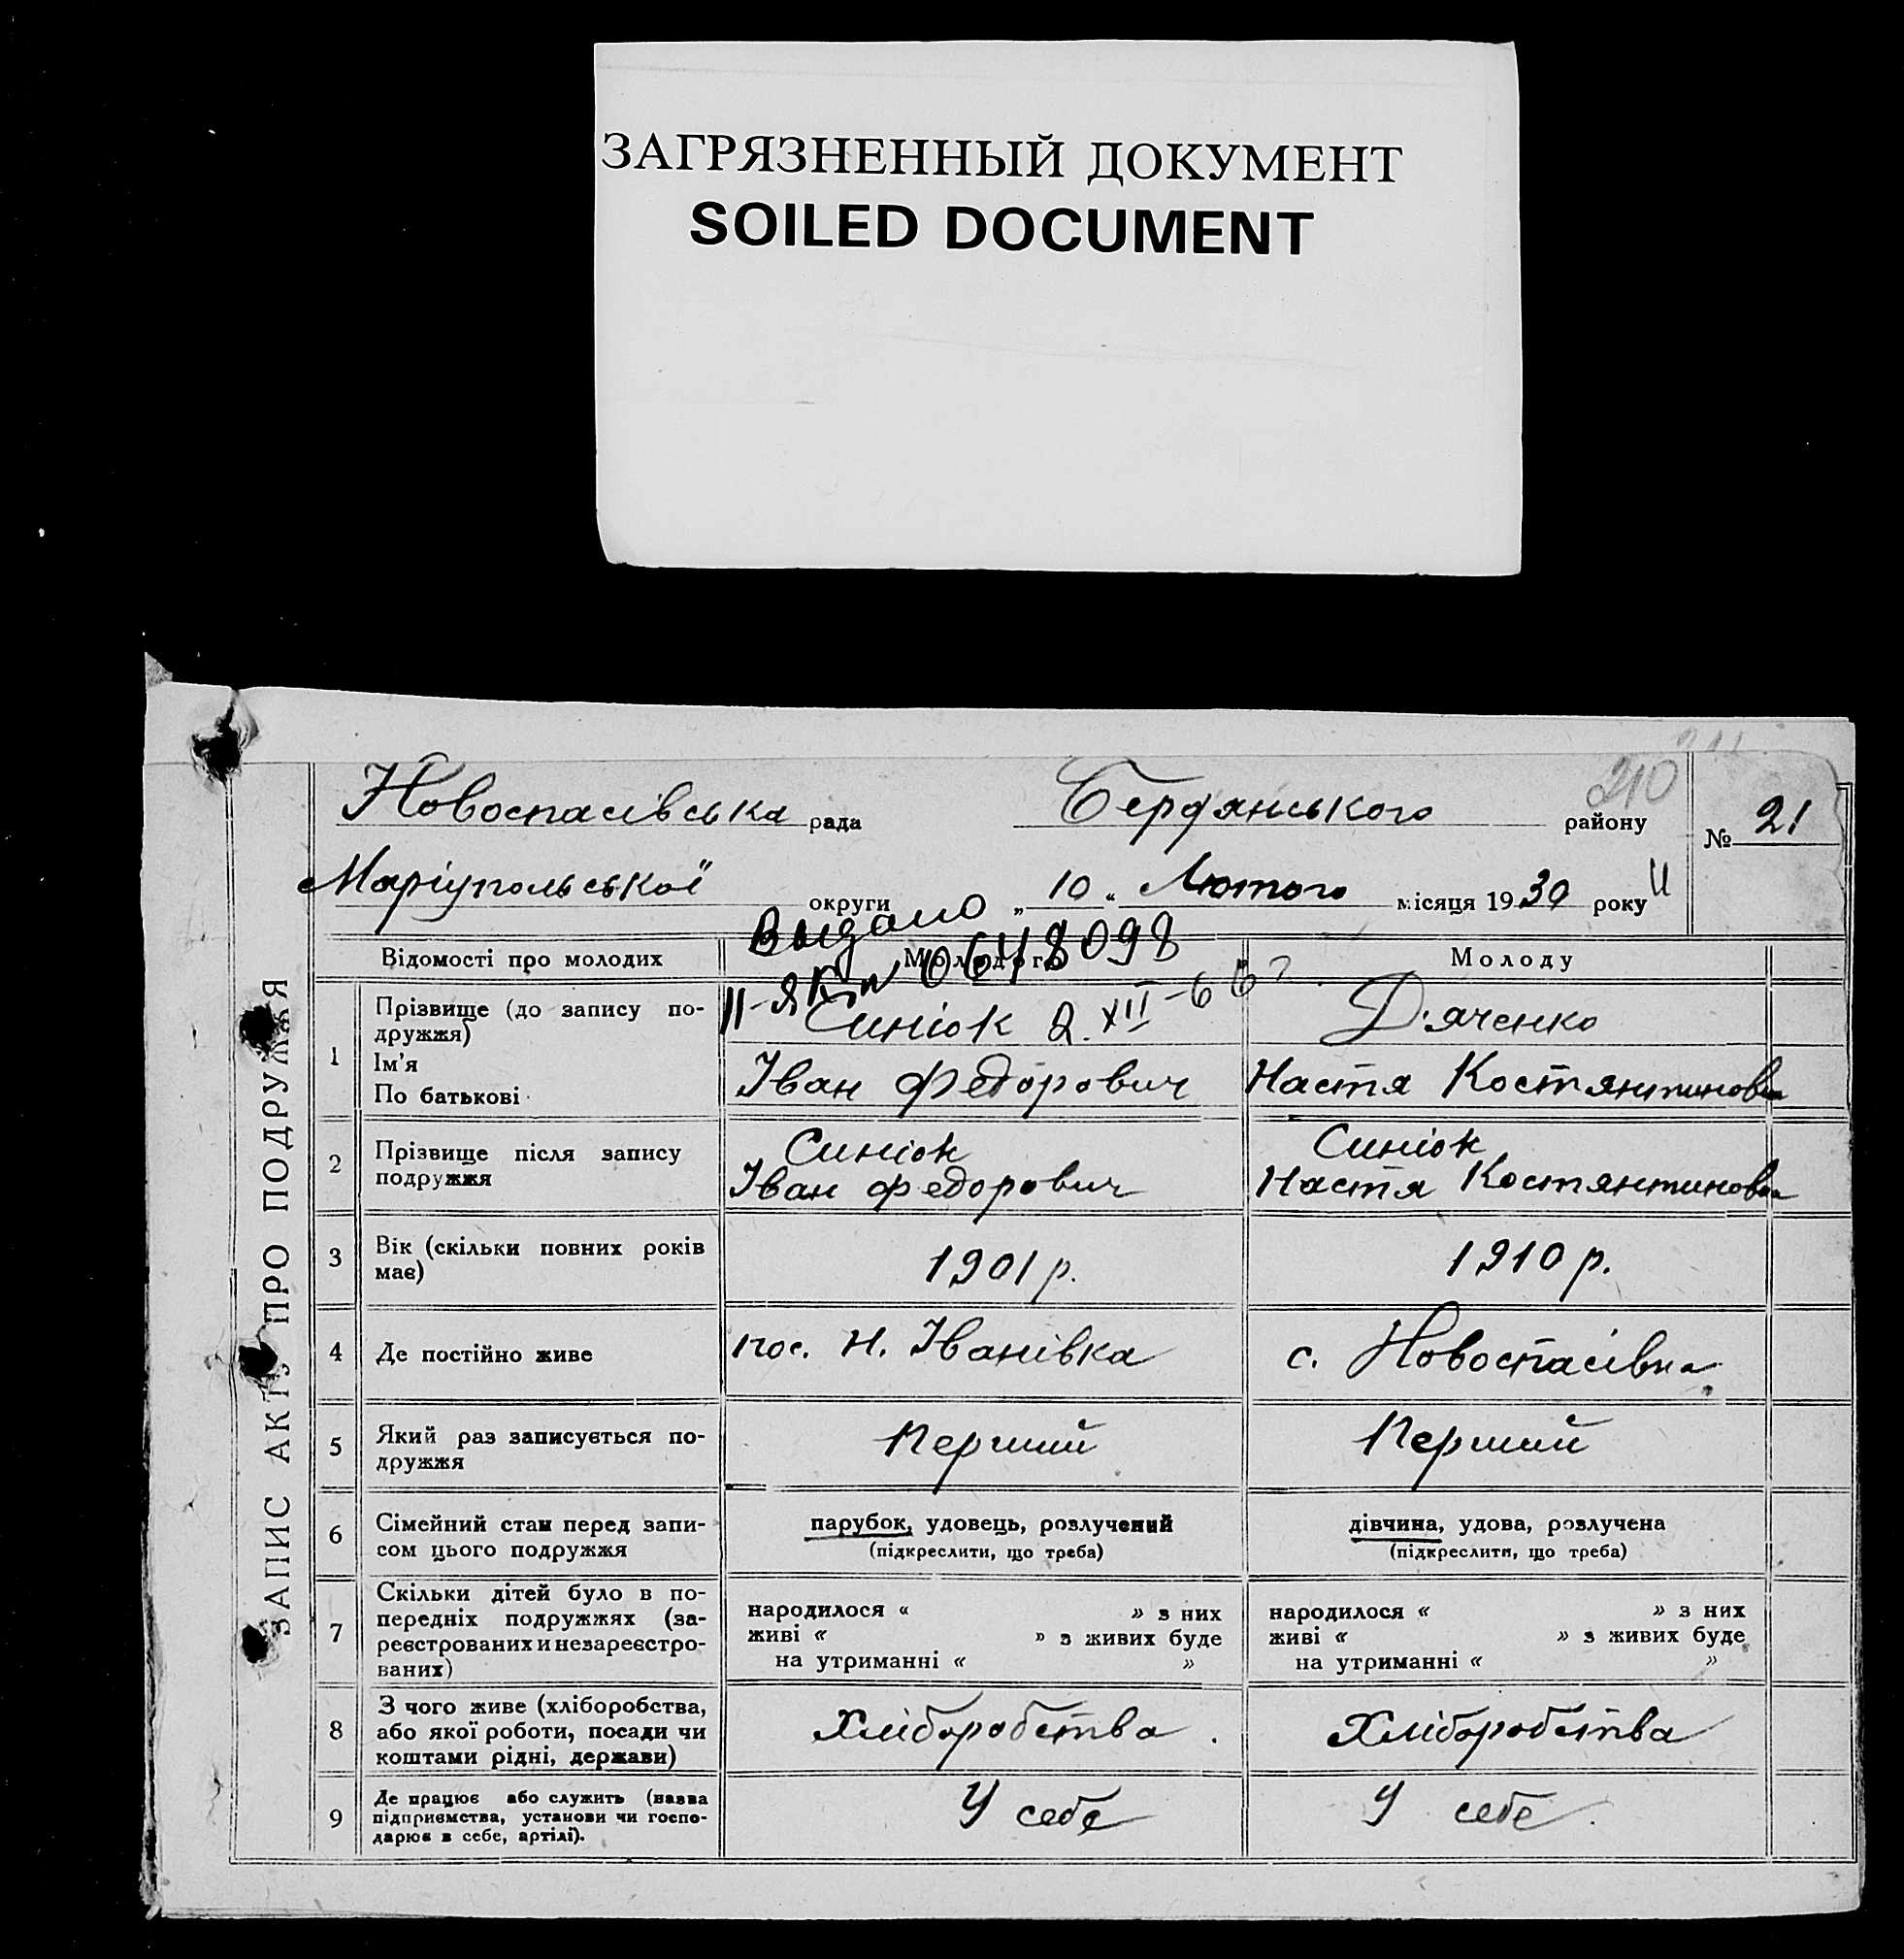 ЗАГРЯЗНЕННЫЙ ДОКУМЕНТ
SOILED DOCUMENT
210
Новоспасівська рада Бердянського району № 21
Маріупольської округи „ 10 “ Лютого місяця 1930 року
Выдано
II-ЯК № 0648098
2.XII-66
ЗАПИС АКТУ ПРО ПОДРУЖЖЯ
Відомості про молодих Молодого Молоду
1 Прізвище (до запису по-
дружжя) Синіок Дяченко
Ім'я
По батькові Іван Федорович Настя Костянтиновна
2 Прізвище після запису
подружжя Синіок Іван Федорович Синіок Настя Костянтиновна
3 Вік (скільки повних років
має) 1901 р. 1910 р.
4 Де постійно живе пос. Н. Іванівка с. Новоспасівка
5 Який раз записується по-
дружжя Перший Перший
6 Сімейний стан перед запи-
сом цього подружжя
парубок, удовець, розлучений дівчина, удова, розлучена
(підкреслити, що треба) (підкреслити, що треба)
7 Скільки дітей було в по-
передніх подружжях (за-
реєстрованих и незареєстро-
ваних)
народилося « » з них народилося « » з них
живі « » з живих буде живі « » з живих буде
на утриманні « » на утриманні « »
8 З чого живе (хліборобства,
або якої роботи, посади чи
коштами рідні, держави) Хліборобства Хліборобства
9 Де працює або служить (назва
підприємства, установи чи госпо-
дарює в себе, артілі). У себе У себе